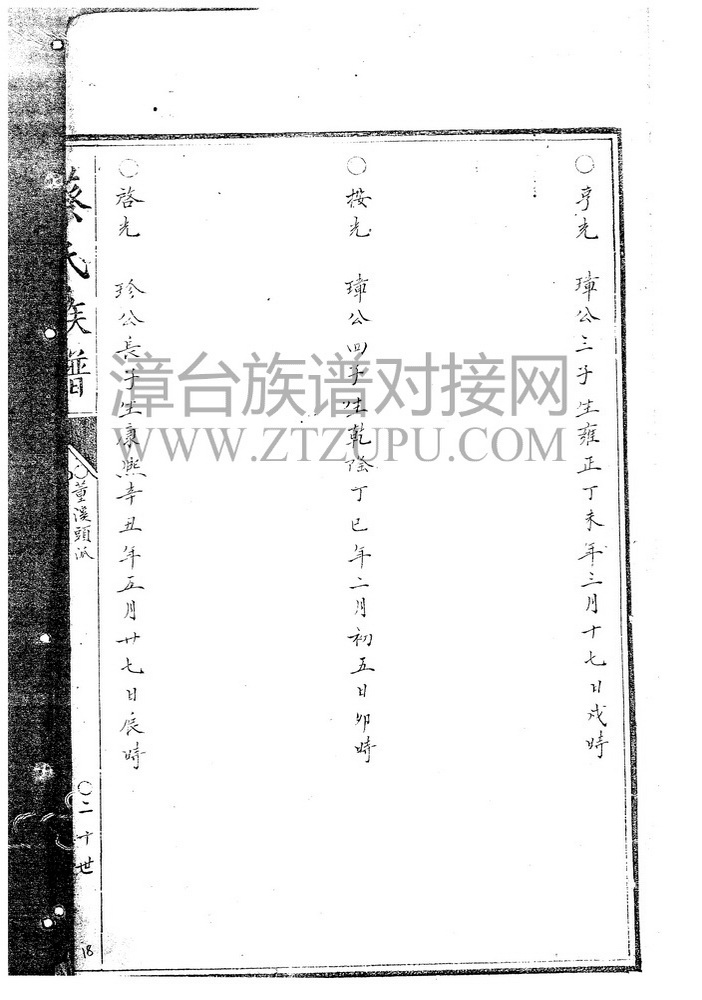 ○亨光 璋公三子生雍正丁未年三月十七日戍時
○按光 璋公四子生乾隆丁巳年二月初五日卯時
○啓光 珍公長子生康熙辛丑年五月廿七日辰時
蔡氏族譜
○董溪頭派
○二十世
18
漳台族谱对接网
WWW.ZTZUPU.COM